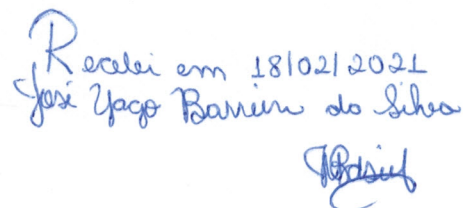 Recebi em 18/02/2021
José Yago Barreiro da Silva